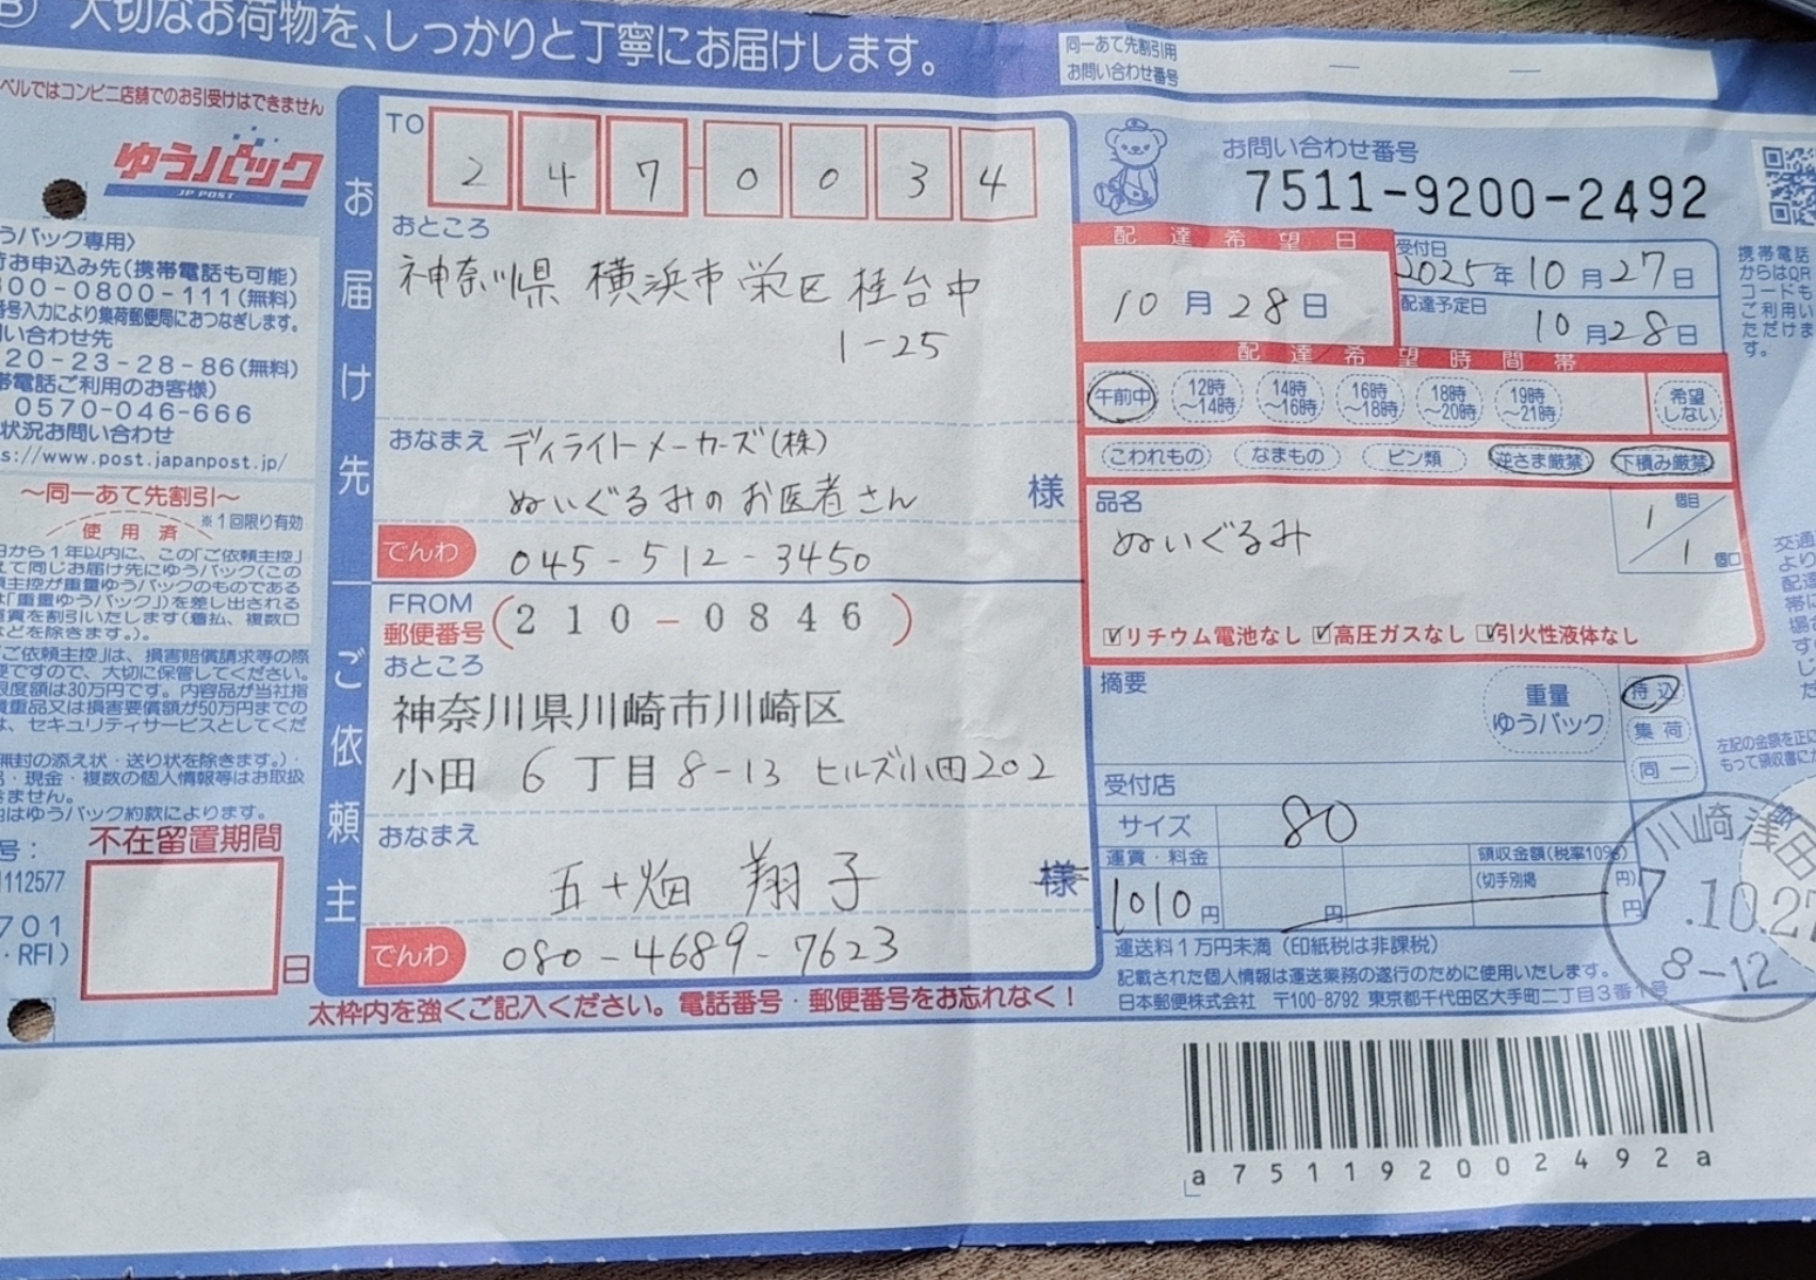 大切なお荷物を、しっかりと丁寧にお届けします。
同一あて先割引用
お問い合わせ番号
ベルではコンビニ店舗でのお引受けはできません
ゆうパック
JP POST
うパック専用〉
お申込み先(携帯電話も可能)
00-0800-111(無料)
番号入力により集荷郵便局におつなぎします。
い合わせ先
20-23-28-86(無料)
帯電話ご利用のお客様)
0570-046-666
状況お問い合わせ
s://www.post.japanpost.jp/
〜同一あて先割引〜
使用済
※1回限り有効
日から1年以内に、この「ご依頼主控」
えて同じお届け先にゆうパック(この
頼主控が重量ゆうパックのものである
「重量ゆうパック」)を差し出される
賃を割引いたします(着払、複数口
などを除きます。)。
ご依頼主控」は、損害賠償請求等の際
要ですので、大切に保管してください。
限度額は30万円です。内容品が当社指
貴重品又は損害要償額が50万円までの
は、セキュリティサービスとしてくだ
無封の添え状・送り状を除きます。)・
・現金・複数の個人情報等はお取扱
ません。
はゆうパック約款によります。
不在留置期間
日
号:
112577
701
・RFI)
お届け先
TO
247-0034
おところ
神奈川県 横浜市 栄区 桂台中
1-25
おなまえ
ディライトメーカーズ(株)
ぬいぐるみのお医者さん
様
でんわ
045-512-3450
ご依頼主
FROM
郵便番号(210-0846)
おところ
神奈川県川崎市川崎区
小田 6 丁目 8-13 ヒルズ小田202
おなまえ
五十畑 翔子
様
でんわ
080-4689-7623
太枠内を強くご記入ください。電話番号・郵便番号をお忘れなく！
お問い合わせ番号
7511-9200-2492
配達希望日
10月28日
受付日
2025年10月27日
配達予定日
10月28日
配達希望時間帯
午前中
12時〜14時
14時〜16時
16時〜18時
18時〜20時
19時〜21時
希望しない
こわれもの
なまもの
ビン類
逆さま厳禁
下積み厳禁
品名
ぬいぐるみ
1個目/1個口
リチウム電池なし 高圧ガスなし 引火性液体なし
摘要
重量
ゆうパック
持込
集荷
同一
受付店
サイズ
80
運賃・料金
1010円
円
領収金額(税率10%)
(切手別掲 円)
円
運送料1万円未満(印紙税は非課税)
記載された個人情報は運送業務の遂行のために使用いたします。
日本郵便株式会社 〒100-8792 東京都千代田区大手町二丁目3番1号
携帯電話
からはQR
コードも
ご利用い
ただけま
す。
左記の金額を正に
もって領収書に
川崎
田
7.10.27
8-12
a751192002492a